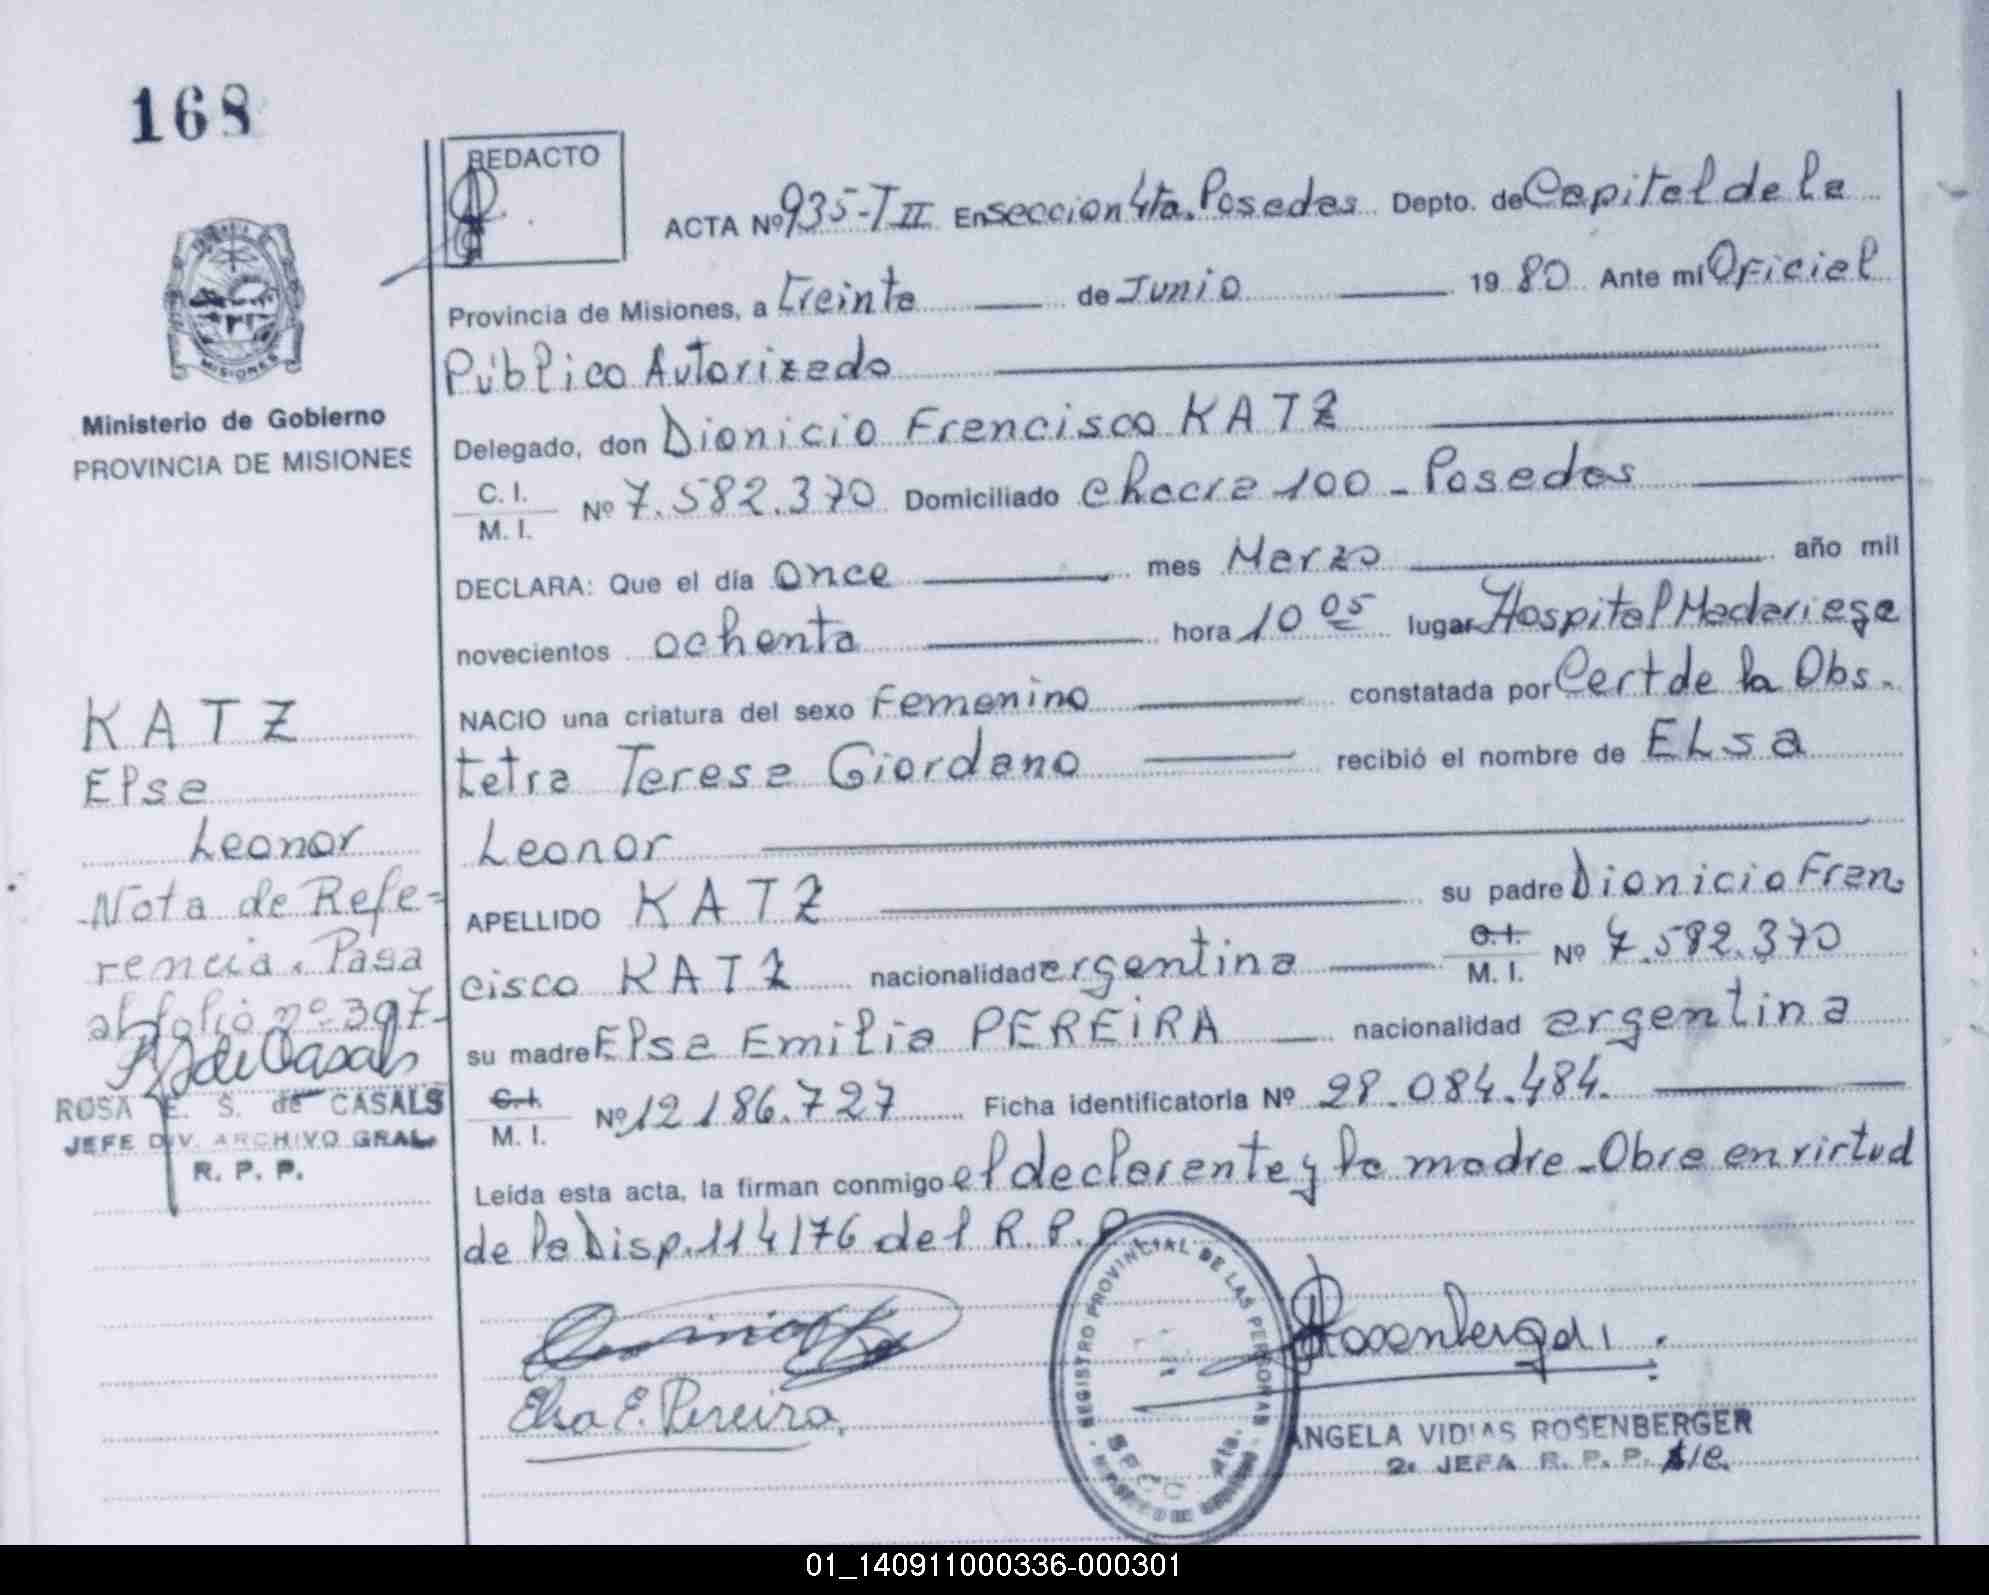 168
REDACTO
ACTA Nº 935-T II En seccion 4ta. Posadas Depto. de Capital de la
Provincia de Misiones, a treinta de Junio 19 80 Ante mí Oficial
Público Autorizado
Delegado, don Dionicio Francisco KATZ
C. I.
M. I. Nº 7.582.370 Domiciliado chacra 100 - Posadas
DECLARA: Que el día once mes Marzo año mil
novecientos ochenta hora 10 05 lugar Hospital Madariaga
NACIO una criatura del sexo Femenino constatada por Cert de la Obs-
tetra Teresa Giordano recibió el nombre de ELsa
Leonor
APELLIDO KATZ su padre Dionicio Fran
cisco KATZ nacionalidad argentina C. I. M. I. Nº 7.582.370
su madre Elsa Emilia PEREIRA nacionalidad argentina
C. I.
M. I. Nº 12186.727 Ficha identificatoria Nº 28.084.484.
Leída esta acta, la firman conmigo el declarante y la madre - Obra en virtud
de la Disp. 114/76 del R. P. P.
Elsa E. Pereira
REGISTRO PROVINCIAL DE LAS PERSONAS
4ta.
Rosenberger
ANGELA VIDIAS ROSENBERGER
2ª JEFA R. P. P. A/C.
MISIONES
Ministerio de Gobierno
PROVINCIA DE MISIONES
KATZ
Elsa
Leonor
Nota de Refe-
rencia. Pasa
al folio nº 397-
R S de Casals
ROSA E. S. de CASALS
JEFE DIV. ARCHIVO GRAL.
R. P. P.
01_140911000336-000301